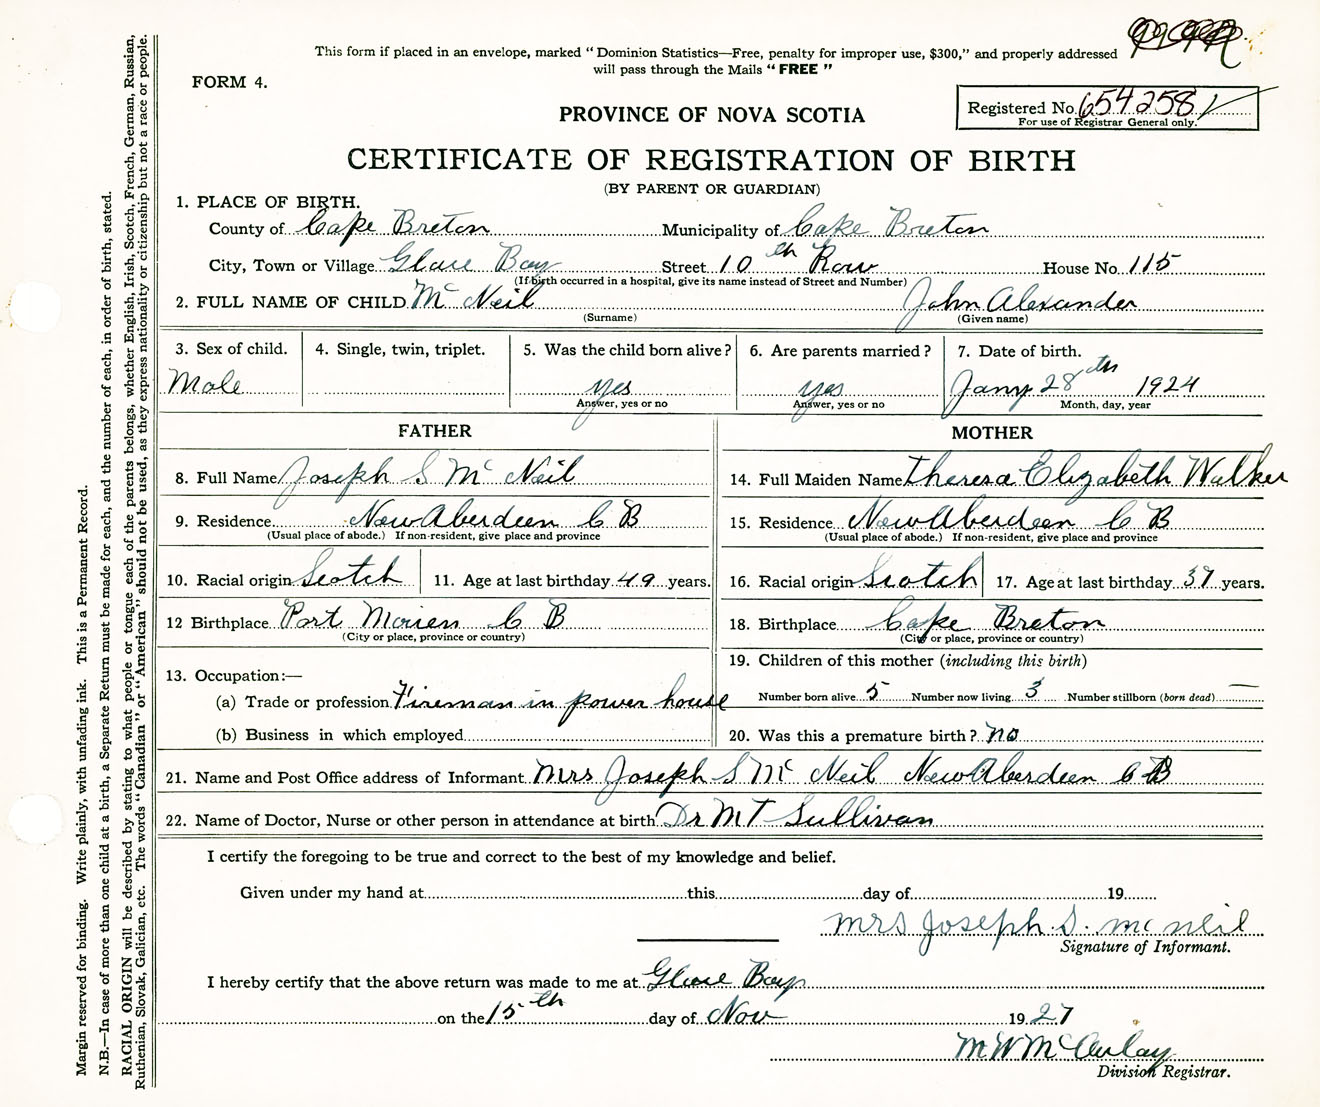 This form if placed in an envelope, marked "Dominion Statistics—Free, penalty for improper use, $300," and properly addressed
will pass through the Mails "FREE"
FORM 4.
Registered No. 654258
For use of Registrar General only.
PROVINCE OF NOVA SCOTIA
CERTIFICATE OF REGISTRATION OF BIRTH
(BY PARENT OR GUARDIAN)
1. PLACE OF BIRTH.
County of Cape Breton Municipality of Cape Breton
City, Town or Village Glace Bay Street 10th Row House No. 115
(If birth occurred in a hospital, give its name instead of Street and Number)
2. FULL NAME OF CHILD McNeil John Alexander
(Surname) (Given name)
3. Sex of child. 4. Single, twin, triplet. 5. Was the child born alive? 6. Are parents married? 7. Date of birth.
Male yes yes Jany 28th 1924
Answer, yes or no Answer, yes or no Month, day, year
FATHER MOTHER
8. Full Name Joseph S McNeil 14. Full Maiden Name Theresa Elizabeth Walker
9. Residence New Aberdeen C B 15. Residence New Aberdeen C B
(Usual place of abode.) If non-resident, give place and province (Usual place of abode.) If non-resident, give place and province
10. Racial origin Scotch 11. Age at last birthday 49 years. 16. Racial origin Scotch 17. Age at last birthday 37 years.
12 Birthplace Port Morien C B 18. Birthplace Cape Breton
(City or place, province or country) (City or place, province or country)
13. Occupation:— 19. Children of this mother (including this birth)
(a) Trade or profession Fireman in power house Number born alive 5 Number now living 3 Number stillborn (born dead) —
(b) Business in which employed 20. Was this a premature birth? no
21. Name and Post Office address of Informant Mrs Joseph S McNeil New Aberdeen C B
22. Name of Doctor, Nurse or other person in attendance at birth Dr M T Sullivan
I certify the foregoing to be true and correct to the best of my knowledge and belief.
Given under my hand at this day of 19
Mrs Joseph S. McNeil
Signature of Informant.
I hereby certify that the above return was made to me at Glace Bay
on the 15th day of Nov 1927
M W McAulay
Division Registrar.
Margin reserved for binding. Write plainly, with unfading ink. This is a Permanent Record.
N.B.—In case of more than one child at a birth, a Separate Return must be made for each, and the number of each, in order of birth, stated.
RACIAL ORIGIN will be described by stating to what people or tongue each of the parents belongs, whether English, Irish, Scotch, French, German, Russian,
Ruthenian, Slovak, Galician, etc. The words "Canadian" or "American" should not be used, as they express nationality or citizenship but not a race or people.